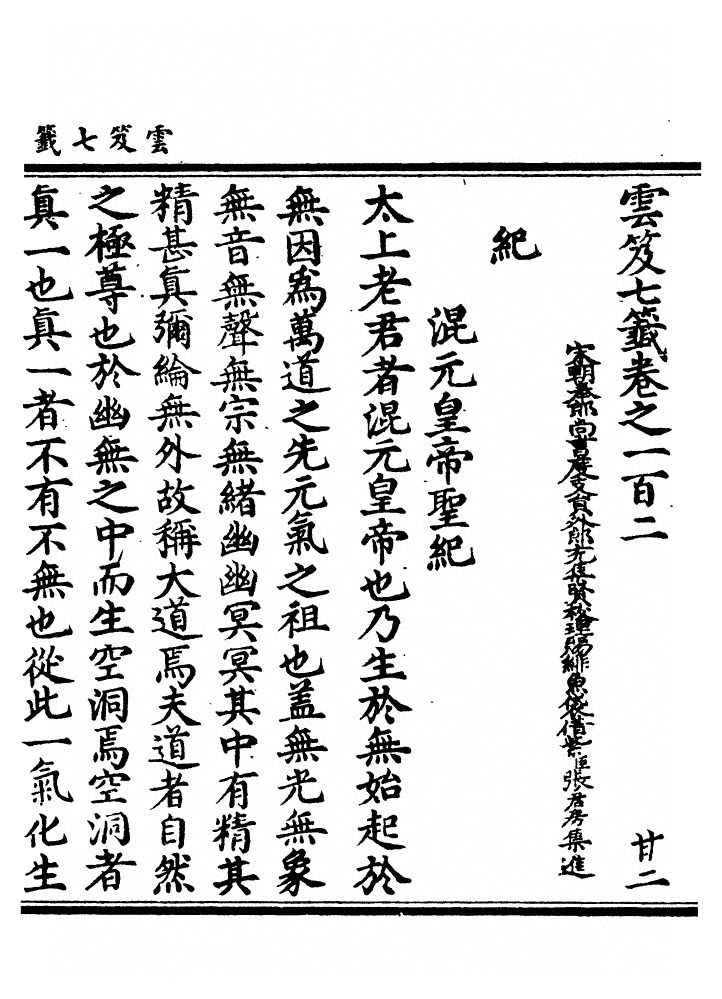 雲笈七籤
雲笈七籤卷之一百二 廿二
宋朝奉郎尚書度支員外郎充集賢校理賜緋魚袋借紫臣張君房集進
紀
混元皇帝聖紀
太上老君者混元皇帝也乃生於無始起於
無因爲萬道之先元氣之祖也蓋無光無象
無音無聲無宗無緒幽幽冥冥其中有精其
精甚真彌綸無外故稱大道焉夫道者自然
之極尊也於幽無之中而生空洞焉空洞者
眞一也眞一者不有不無也從此一氣化生